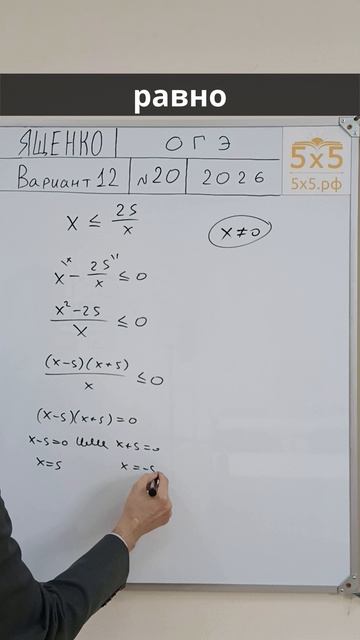 равно
ЯЩЕНКО ОГЭ
Вариант 12 №20 2026
5x5
5x5.рф
x ≤ 25/x
x ≠ 0
x - 25/x ≤ 0
(x² - 25)/x ≤ 0
(x-5)(x+5)/x ≤ 0
(x-5)(x+5)=0
x-5=0 или x+5=0
x=5 x=-5